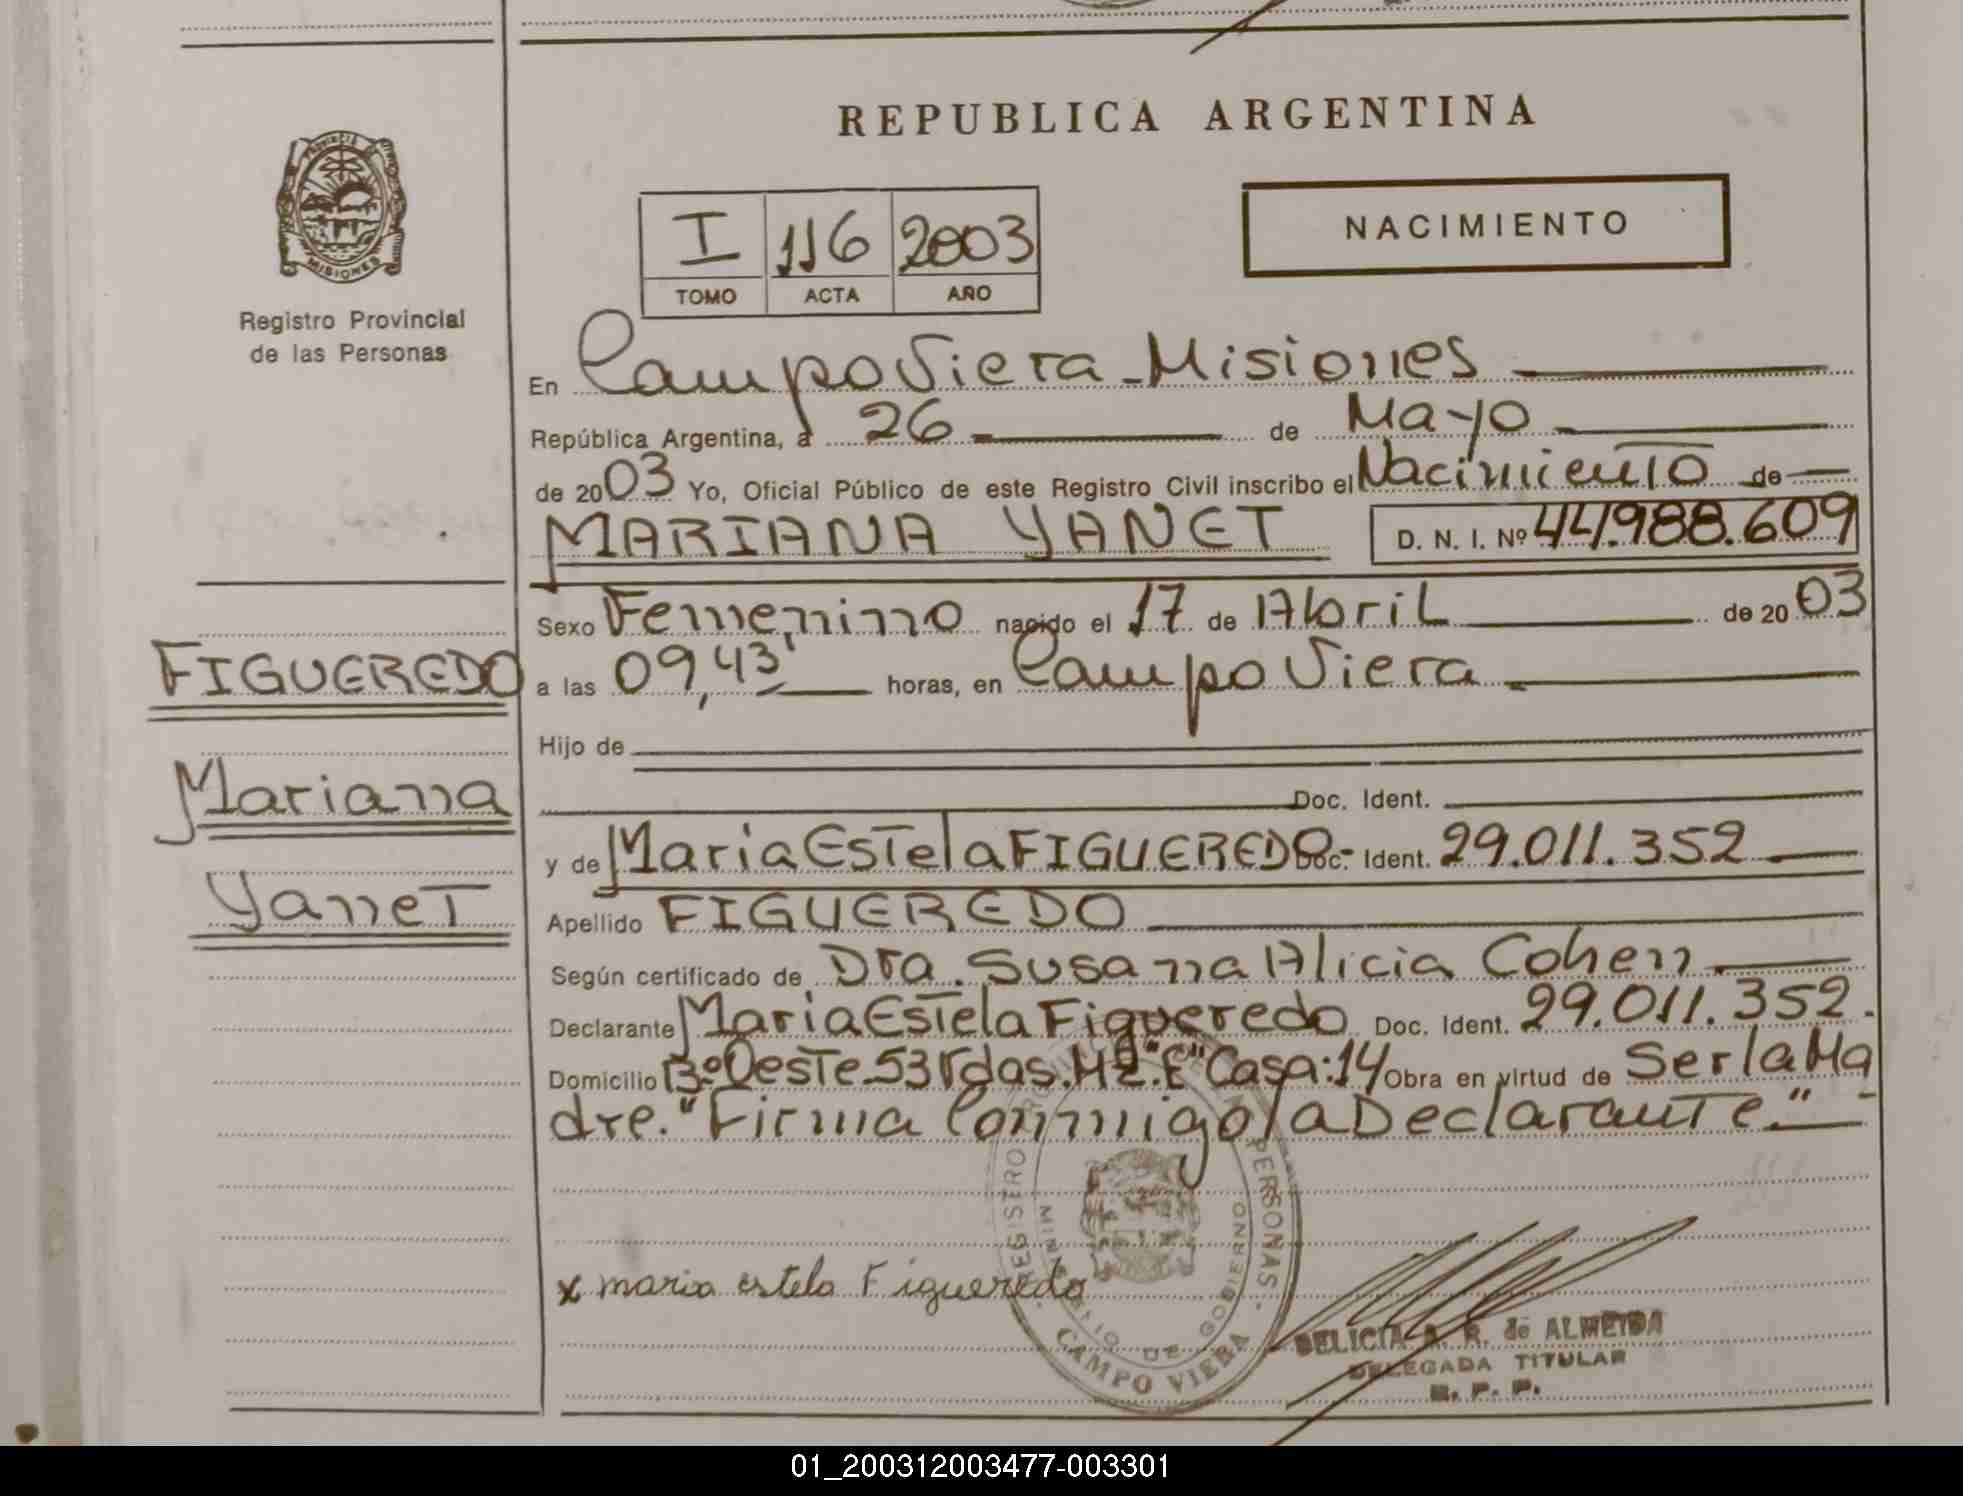 REPUBLICA ARGENTINA
PROVINCIA DE MISIONES
Registro Provincial
de las Personas
I 116 2003
TOMO ACTA AÑO
NACIMIENTO
En Campo Viera - Misiones
República Argentina, a 26 de Mayo
de 2003 Yo, Oficial Público de este Registro Civil inscribo el Nacimiento de
MARIANA YANET D. N. I. Nº 44.988.609
Sexo Femenino nacido el 17 de Abril de 2003
FIGUEREDO
a las 09,43' horas, en Campo Viera
Hijo de
Mariana
Doc. Ident.
y de Maria Estela FIGUEREDO - Doc. Ident. 29.011.352
Yanet
Apellido FIGUEREDO
Según certificado de Dra. Susana Alicia Cohen
Declarante Maria Estela Figueredo Doc. Ident. 29.011.352.
Domicilio Bº Oeste 53 Vdas. Mz."E" Casa: 14 Obra en virtud de Ser la Ma
dre. "Firma Conmigo la Declarante" -
x maria estela Figueredo
REGISTRO PERSONAS
MINISTERIO DE GOBIERNO
CAMPO VIERA
DELICIA A. R. de ALMEIDA
DELEGADA TITULAR
R. P. P.
01_200312003477-003301